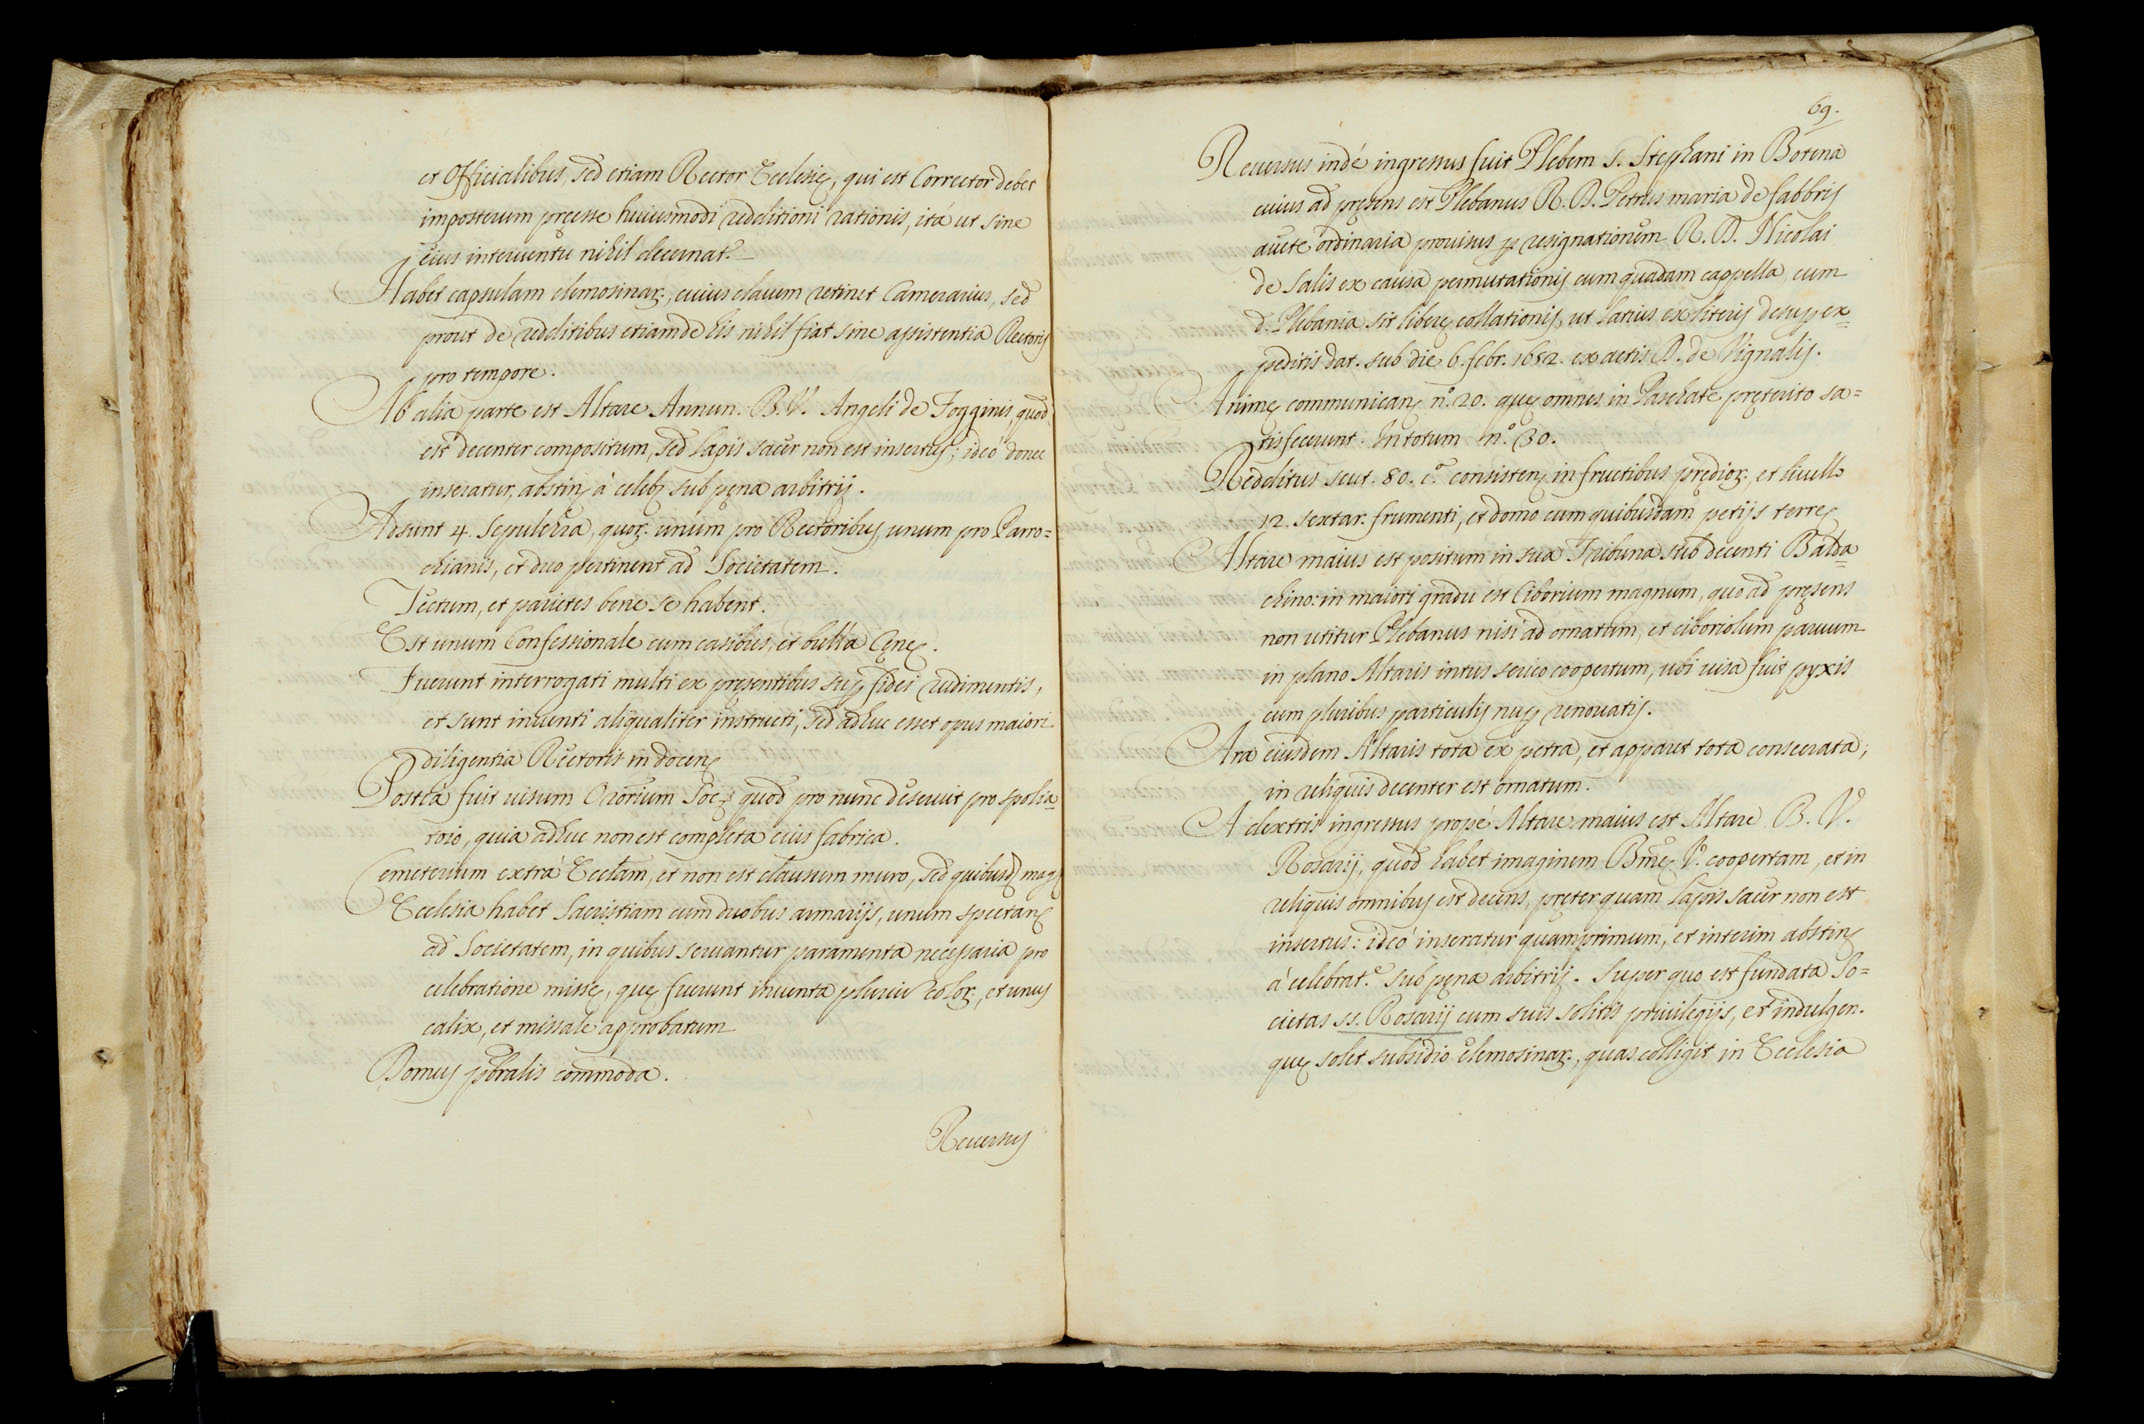 et Officialibus, sed etiam Rector Ecclesię, qui est Corrector debet
imposterum pręesse huiusmodi redditioni rationis, ità ut sine
eius interuentu nihil decernat.r
Habet capsulam elemosinar:, cuius clauem retinet Camerarius, sed
prout de redditibus etiam de his nihil fiat sine assistentia Rectoris
pro tempore.
Ab alia parte est Altare Annun. B. V. Angeli de Fogginis, quod
est decenter compositum, sed lapis sacer non est insertus; ideò donec
inseratur, abstin. à celeb. sub pęna arbitrij.
Adsunt 4. Sepulcra, quor. unum pro Rectoribus, unum pro Parro=
chianis, et duo pertinent ad Societatem.
Tectum, et parietes bene se habent.
Est unum Confessionale cum casibus, et bulla Cęnę.
Fuerunt interrogati multi ex pręsentibus sup. fidei rudimentis,
et sunt inuenti aliqualiter instructi, sed adhuc esset opus maiori
diligentia Rectoris in docen.
Posteà fuit uisum Ororium Soc.s quod pro nunc deseruit pro spolia=
toio, quia adhuc non est completa eius fabrica.
Cemeterium extrà Ecclam, et non est clausum muro, sed quibusd. mac.
Ecclesia habet Sacristiam cum duobus armarijs, unum spectan.
ad Societatem, in quibus seruantur paramenta necessaria pro
celebratione missę, quę fuerunt inuenta plurium color., et unus
calix, et missale approbatum
Domus pbralis commoda.
Reuersus
69.
Reuersus indè ingressus fuit Plebem S. Stephani in Botena
cuius ad pręsens est Plebanus R. D. Petrus maria de fabbris
aucte ordinaria prouisus p resignationem R. D. Nicolai
de Salis ex causa permutationis cum quadam cappella, cum
d. Plebania sit liberę collationis, ut latius ex literis desup. ex=
peditis dat. sub die 6. febr. 1652. ex actis D. de Vignalis.
Animę communican. n.o 20. quę omnes in Paschate pręterito sa=
tisfecerunt. In totum n.o 30.
Redditus scut. 80. c.a consisten. in fructibus prędior. et liuello
12. sextar. frumenti, et domo cum quibusdam petijs terrę
Altare maius est positum in sua Tribuna sub decenti Balda=
chino: in maiori gradu est Ciborium magnum, quo ad pręsens
non utitur Plebanus nisi ad ornatum, et ciboriolum paruum
in plano Altaris intus serico coopertum, ubi uisa fuit pyxis
cum pluribus particulis nup. renouatis.
Ara eiusdem Altaris tota ex petra, et apparet tota consecrata;
in reliquis decenter est ornatum.
A dextris ingressus propè Altare maius est Altare B. V.
Rosarij, quod habet imaginem Bmę V. coopertam, et in
reliquis omnibus est decens, pręterquam lapis sacer non est
insertus: ideò inseratur quamprimum, et interim abstin.
à celebrat.e sub pęna arbitrij. Super quo est fundata So=
cietas SS. Rosarij cum suis solitis priuilegijs, et indulgen.
quę solet subsidio elemosinar., quas colligit in Ecclesia